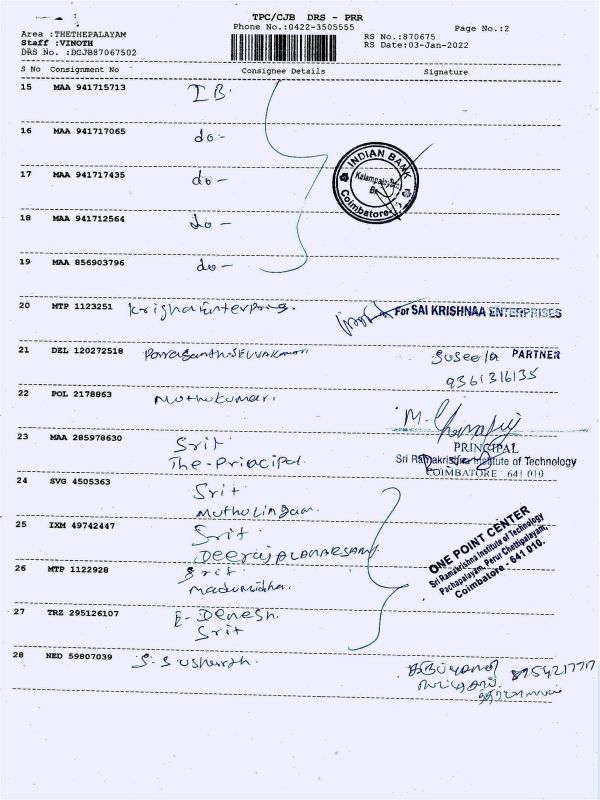 TPC/CJB DRS - PRR
Phone No.:0422-3505555
Page No.:2
Area :THETHEPALAYAM
Staff :VINOTH
DRS No. :DCJB87067502
RS No.:870675
RS Date:03-Jan-2022
S No Consignment No Consignee Details Signature
15 MAA 941715713 I B.
16 MAA 941717065 do-
17 MAA 941717435 do-
INDIAN BANK
Kalampalayam
Br.
Coimbatore
18 MAA 941712564 do-
19 MAA 856903796 do-
20 MTP 1123251 For SAI KRISHNAA ENTERPRISES
21 DEL 120272518 Suseela PARTNER
9361316135
22 POL 2178863 Muthukumar.
M.
23 MAA 285978630 Srit PRINCIPAL
The-Principal. Sri Ramakrishna Institute of Technology
COIMBATORE 641 010
24 SVG 4505363 Srit
Mutholingam.
25 IXM 49742447 Srit
ONE POINT CENTER
Sri Ramakrishna Institute of Technology
Pachapalayam, Perur Chettipalayam,
Coimbatore - 641 010.
26 MTP 1122928 Srit
27 TRZ 295126107 E- Denesh.
Srit
28 NED 59807039